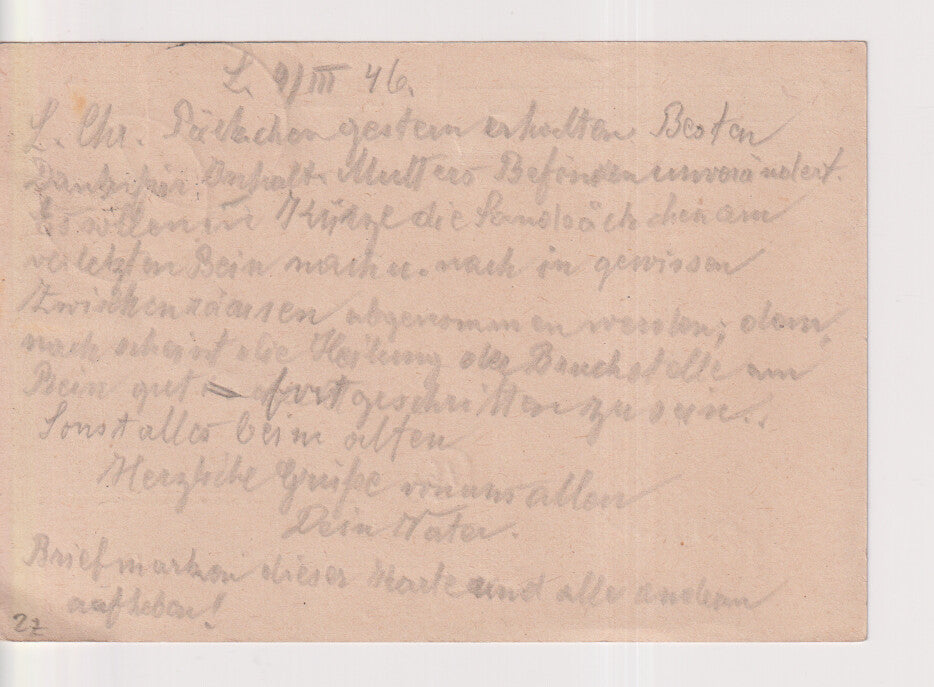 L. 9/III 46.
L. Chr. Päckchen gestern erhalten. Besten
Dank für Inhalt. Mutters Befinden unverändert.
Es sollen in Kürze die Sandsäckchen am
verletzten Bein nach u. nach in gewissen
Zwischenräumen abgenommen werden; dem-
nach scheint die Heilung der Bruchstelle am
Bein gut fortgeschritten zu sein..
Sonst alles beim alten
Herzliche Grüße von uns allen
Dein Vater.
Briefmarken dieser Karte und alle andern
aufheben!
27